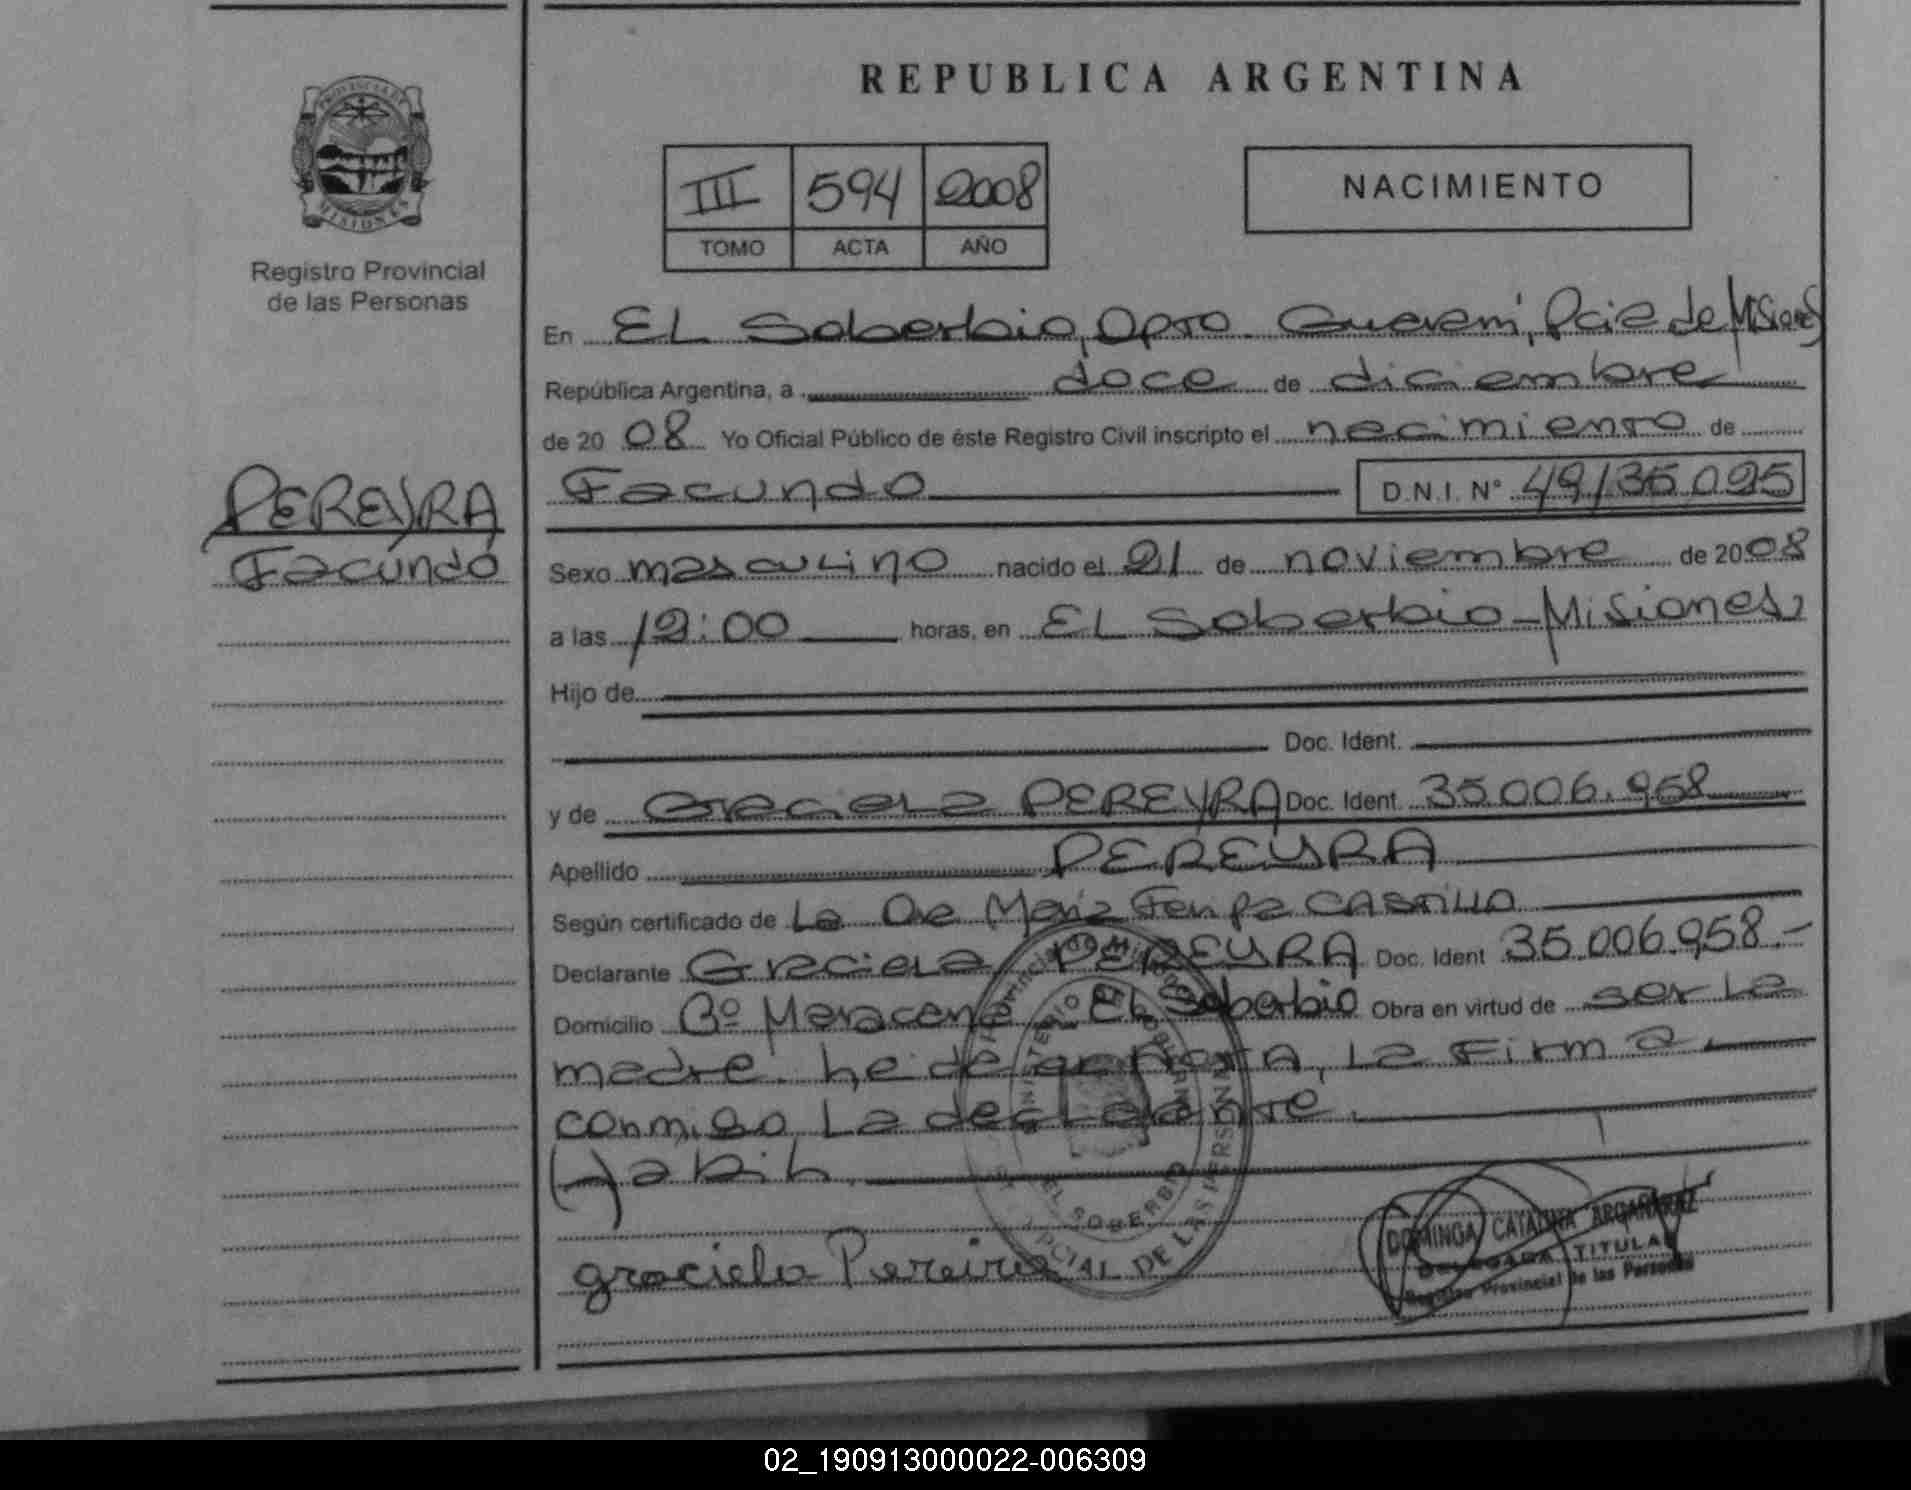 REPUBLICA ARGENTINA
PROVINCIA DE
MISIONES
Registro Provincial
de las Personas
III 594 2008
TOMO ACTA AÑO
NACIMIENTO
En EL Soberbio, Dpto. Guaraní, Pcia de Misiones
República Argentina, a doce de diciembre
de 20 08 Yo Oficial Público de éste Registro Civil inscripto el nacimiento de
Facundo D.N.I. N° 49135.095
PEREYRA
Facundo
Sexo masculino nacido el 21 de noviembre de 20 08
a las 12:00 horas, en EL Soberbio - Misiones
Hijo de
Doc. Ident.
y de Graciela PEREYRA Doc. Ident. 35.006.958
Apellido PEREYRA
Según certificado de La Dra Maria CASTILLO
Declarante Graciela PEREYRA Doc. Ident 35.006.958.-
Domicilio Bº El Soberbio Obra en virtud de ser la
madre. La Firma
conmigo La declarante.
graciela Pereira
EL SOBERBIO
DE LAS PERSONAS
DOMINGA CATALINA ARGAÑARAZ
DELEGADA TITULAR
Registro Provincial de las Personas
02_190913000022-006309